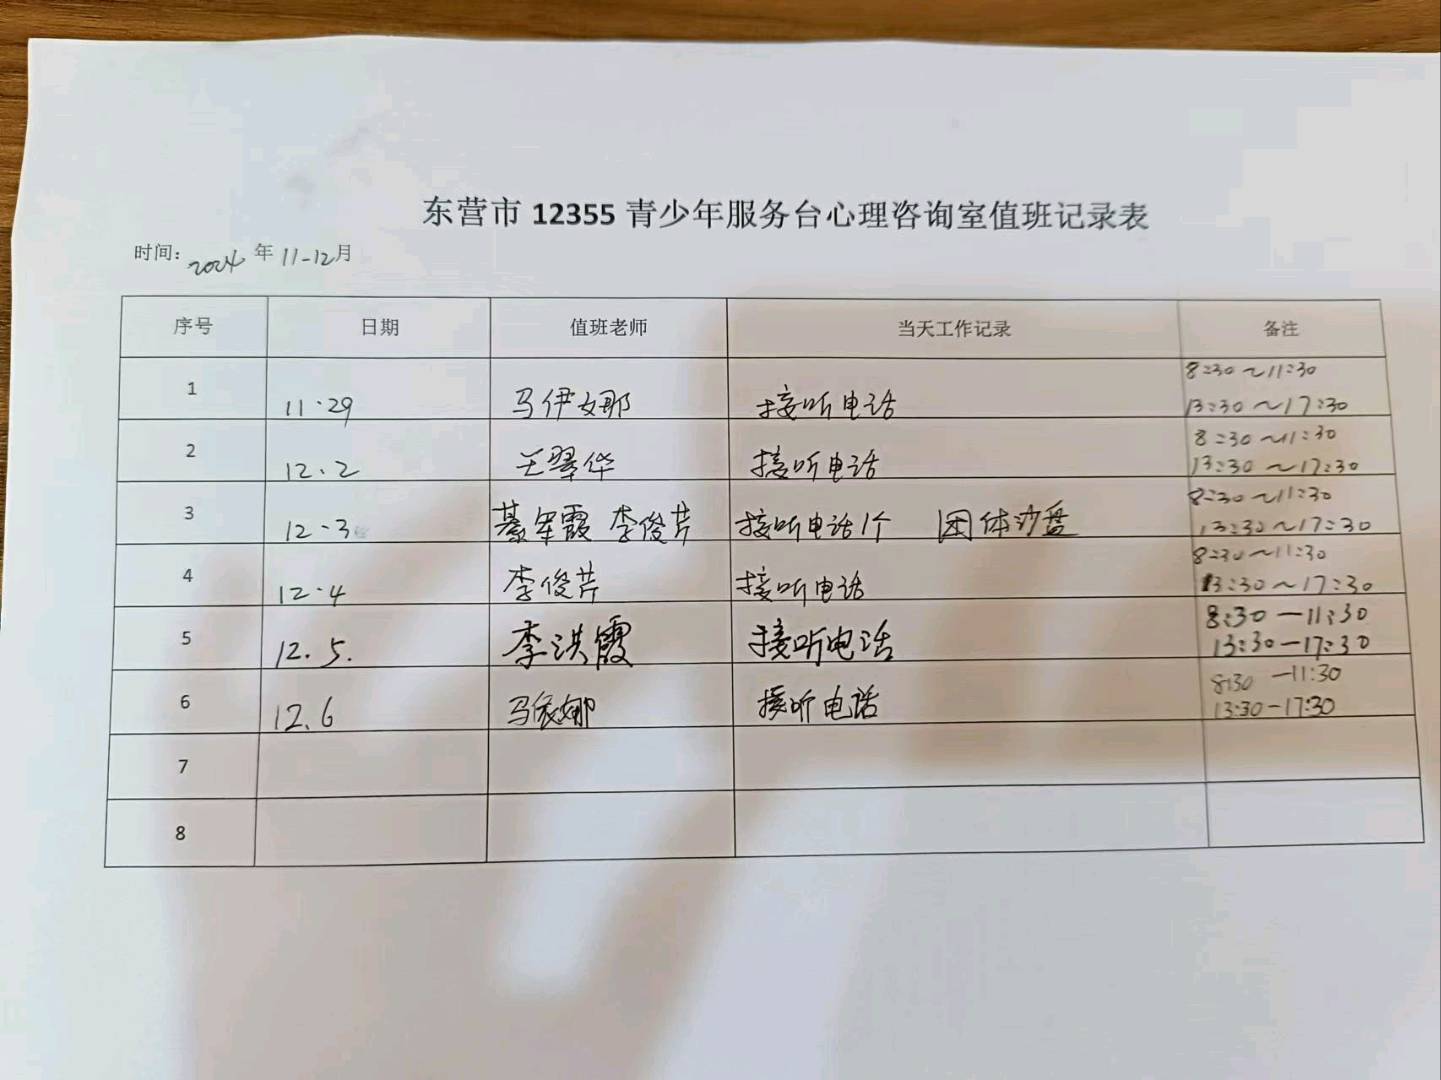 东营市 12355 青少年服务台心理咨询室值班记录表
时间：2024 年 11-12月
序号 日期 值班老师 当天工作记录 备注
1 11·29 马伊娜 接听电话 8:30～11:30
13:30～17:30
2 12·2 王翠华 接听电话 8:30～11:30
13:30～17:30
3 12·3 綦军霞 李俊芹 接听电话1个 团体沙盘 8:30～11:30
13:30～17:30
4 12·4 李俊芹 接听电话 8:30～11:30
13:30～17:30
5 12.5. 李洪霞 接听电话 8:30—11:30
13:30—17:30
6 12.6 马依娜 接听电话 8:30 —11:30
13:30—17:30
7
8